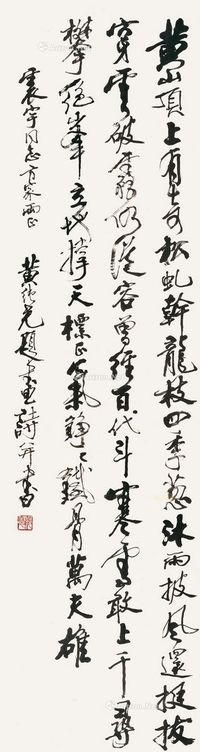 黄山頂上有奇松虬幹龍枝四季葱沐雨披風還挺拔
穿雲破霧仍從容曾經百代斗寒雪敢上千尋
攀絕峯立地撑天標正氣錚々鐵骨萬夫雄
震宇同志方家兩正
黄純尧題畫詩并書